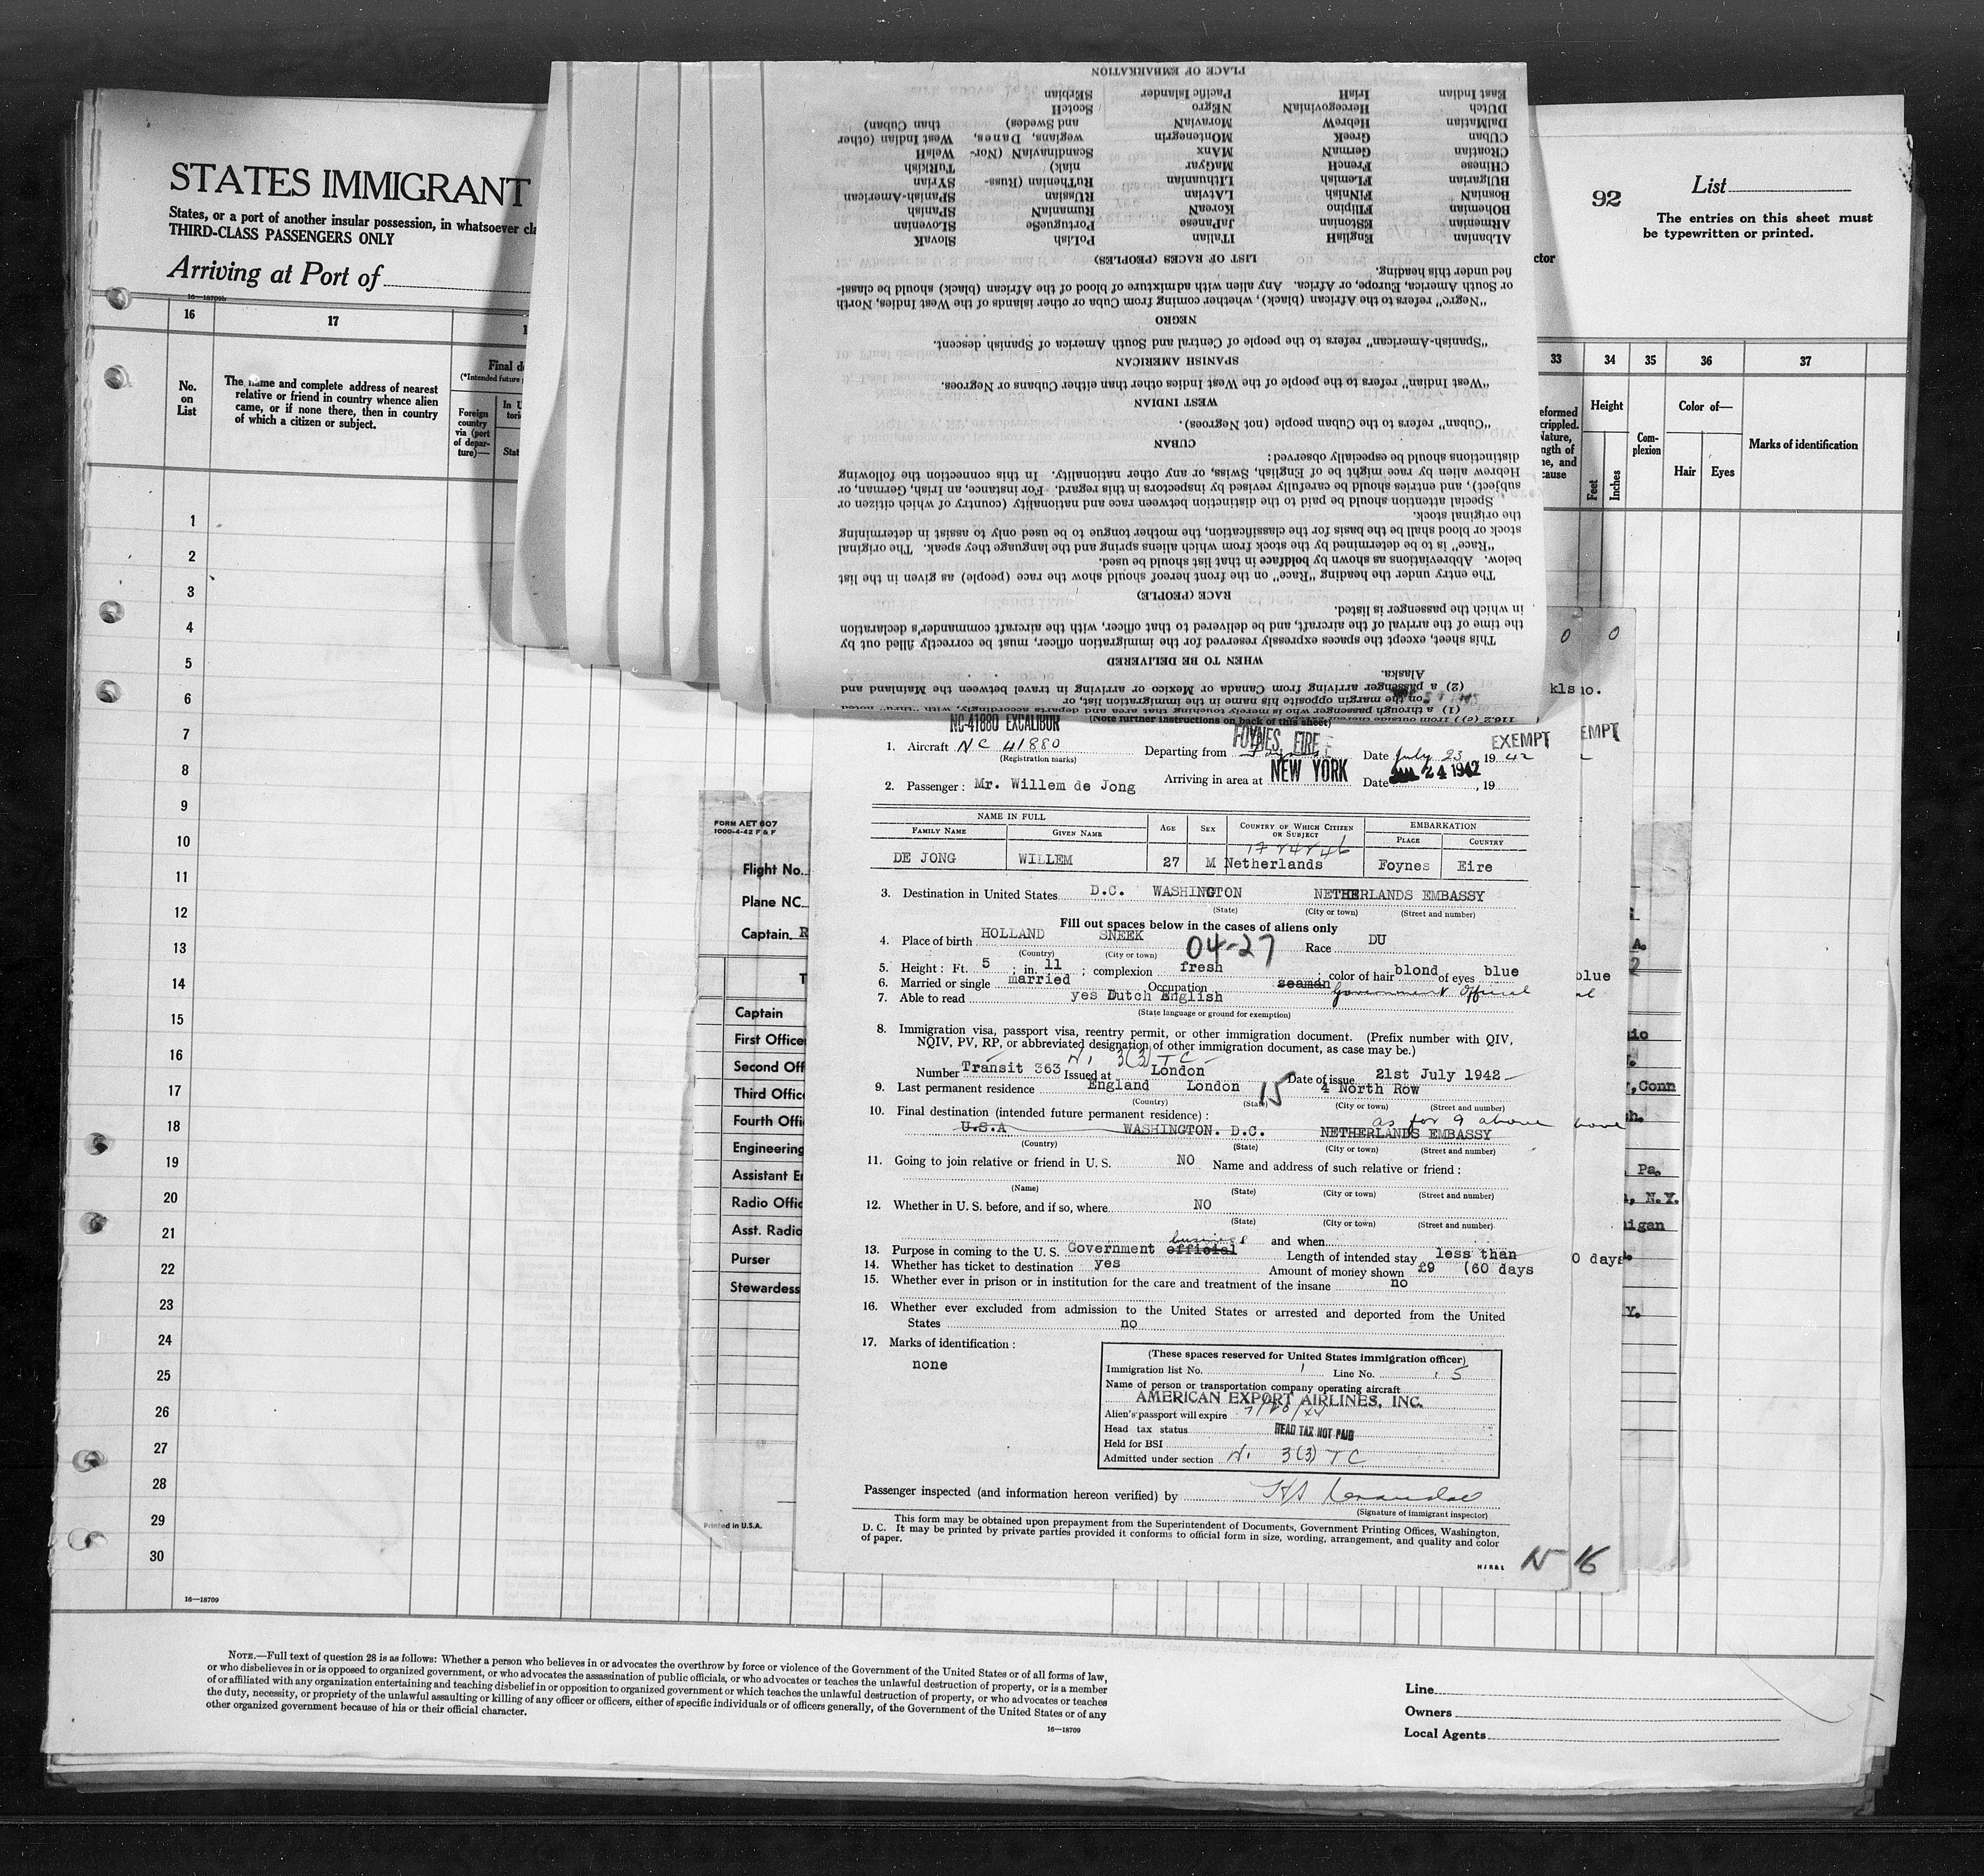 STATES IMMIGRANT
States, or a port of another insular possession, in whatsoever
THIRD-CLASS PASSENGERS ONLY
Arriving at Port of
16—18709b
16
17
No. on List
The name and complete address of nearest relative or friend in country whence alien came, or if none there, then in country of which a citizen or subject.
Final
(*Intended future
Foreign country via (port of departure)—
In U
1
2
3
4
5
6
7
8
9
10
11
12
13
14
15
16
17
18
19
20
21
22
23
24
25
26
27
28
29
30
16—18709
92
List
The entries on this sheet must
be typewritten or printed.
33
34
35
36
37
Height
Feet
Inches
Com-
plexion
Color of—
Hair
Eyes
Marks of identification
This sheet, except the spaces expressly reserved for the immigration officer, must be correctly filled out by
the time of the arrival of the aircraft, and be delivered to that officer, with the aircraft commander's declaration
in which the passenger is listed.
WHEN TO BE DELIVERED
(2) a passenger arriving from Canada or Mexico or arriving in travel between the Mainland and
Alaska.
RACE (PEOPLE)
The entry under the heading "Race" on the front hereof should show the race (people) as given in the list
below. Abbreviations as shown by boldface in that list should be used.
"Race" is to be determined by the stock from which aliens spring and the language they speak. The original
stock or blood shall be the basis for the classification, the mother tongue to be used only to assist in determining
the original stock.
Special attention should be paid to the distinction between race and nationality (country of which citizen or
subject), and entries should be carefully revised by inspectors in this regard. For instance, an Irish, German, or
Hebrew alien by race might be of English, Swiss, or any other nationality. In this connection the following
distinctions should be especially observed:
CUBAN
"Cuban" refers to the Cuban people (not Negroes).
WEST INDIAN
"West Indian" refers to the people of the West Indies other than either Cubans or Negroes.
SPANISH AMERICAN
"Spanish-American" refers to the people of Central and South America of Spanish descent.
NEGRO
"Negro" refers to the African (black), whether coming from Cuba or other islands of the West Indies, North
or South America, Europe, or Africa. Any alien with admixture of blood of the African (black) should be classi-
fied under this heading.
LIST OF RACES (PEOPLES)
ALbanian EngliisH ITalian PoLish SlovaK
ARmenian EStonian JaPanese PortugueSe SLovenian
BOhemian FIlipino KoreaN RumaniaN SPanish
BosniaN FiNish LATvian RUssian SPanish-American
BUlgarian FLemish LIthuanian RuThenian (Russ- SYrian
CHinese FrencH MaGyar niak) TuRkish
CRoatian GermaN MAnx ScandinaviaN (Nor- WelsH
CUban GreeK MOntenegrin wegians, Danes, West Indian (other
DalMatian HebreW MoraviaN and Swedes) than Cuban)
DUtch HercegoviniaN NEgro ScotcH
East Indian IrisH Pacific Islander SErbian
PLACE OF EMBARKATION
FORM AET 607
1000-4-42 F & F
Flight No.
Plane NC
Captain R
Captain
First Office
Second Off
Third Offic
Fourth Offi
Engineering
Assistant E
Radio Offic
Asst. Radio
Purser
Stewardess
Printed in U.S.A.
NC-41880 EXCALIBUR
(Note further instructions on back of this sheet)
1. Aircraft NC 41880 Departing from FOYNES, EIRE Date July 23, 1942
EXEMPT
(Registration marks)
Arriving in area at NEW YORK Date 24 1942, 19
2. Passenger: Mr. Willem de Jong
NAME IN FULL
FAMILY NAME GIVEN NAME AGE SEX COUNTRY OF WHICH CITIZEN OR SUBJECT EMBARKATION PLACE COUNTRY
DE JONG WILLEM 27 M Netherlands Foynes Eire
3. Destination in United States D.C. WASHINGTON NETHERLANDS EMBASSY
(State) (City or town) (Street and number)
Fill out spaces below in the cases of aliens only
4. Place of birth HOLLAND SNEEK 04-27 Race DU
(Country) (City or town)
5. Height: Ft. 5; in. 11; complexion fresh; color of hair blond of eyes blue
6. Married or single married Occupation seaman Government Official
7. Able to read yes Dutch English
(State language or ground for exemption)
8. Immigration visa, passport visa, reentry permit, or other immigration document. (Prefix number with QIV,
NQIV, PV, RP, or abbreviated designation of other immigration document, as case may be.)
3(3) TC
Number Transit 363 Issued at London Date of issue 21st July 1942
9. Last permanent residence England London 15 4 North Row
(Country) (State) (City or town) (Street and number)
10. Final destination (intended future permanent residence): as for 9 above
U.S.A WASHINGTON. D.C. NETHERLANDS EMBASSY
(Country) (State) (City or town) (Street and number)
11. Going to join relative or friend in U. S. NO Name and address of such relative or friend:
(Name) (State) (City or town) (Street and number)
12. Whether in U. S. before, and if so, where NO
(State) (City or town) (Street and number)
and when
13. Purpose in coming to the U. S. Government official business Length of intended stay less than
14. Whether has ticket to destination yes Amount of money shown £9 (60 days
15. Whether ever in prison or in institution for the care and treatment of the insane no
16. Whether ever excluded from admission to the United States or arrested and deported from the United
States no
17. Marks of identification:
none
(These spaces reserved for United States immigration officer)
Immigration list No. 1 Line No. 5
Name of person or transportation company operating aircraft
AMERICAN EXPORT AIRLINES, INC.
Alien's passport will expire
Head tax status HEAD TAX NOT PAID
Held for BSI
Admitted under section 3(3) TC
Passenger inspected (and information hereon verified) by
(Signature of immigrant inspector)
This form may be obtained upon prepayment from the Superintendent of Documents, Government Printing Offices, Washington,
D. C. It may be printed by private parties provided it conforms to official form in size, wording, arrangement, and quality and color
of paper.
H J R & L
N 16
NOTE.—Full text of question 28 is as follows: Whether a person who believes in or advocates the overthrow by force or violence of the Government of the United States or of all forms of law,
or who disbelieves in or is opposed to organized government, or who advocates the assassination of public officials, or who advocates or teaches the unlawful destruction of property, or is a member
of or affiliated with any organization entertaining and teaching disbelief in or opposition to organized government or which teaches the unlawful destruction of property, or who advocates or teaches
the duty, necessity, or propriety of the unlawful assaulting or killing of any officer or officers, either of specific individuals or of officers generally, of the Government of the United States or of any
other organized government because of his or their official character.
16—18709
Line
Owners
Local Agents